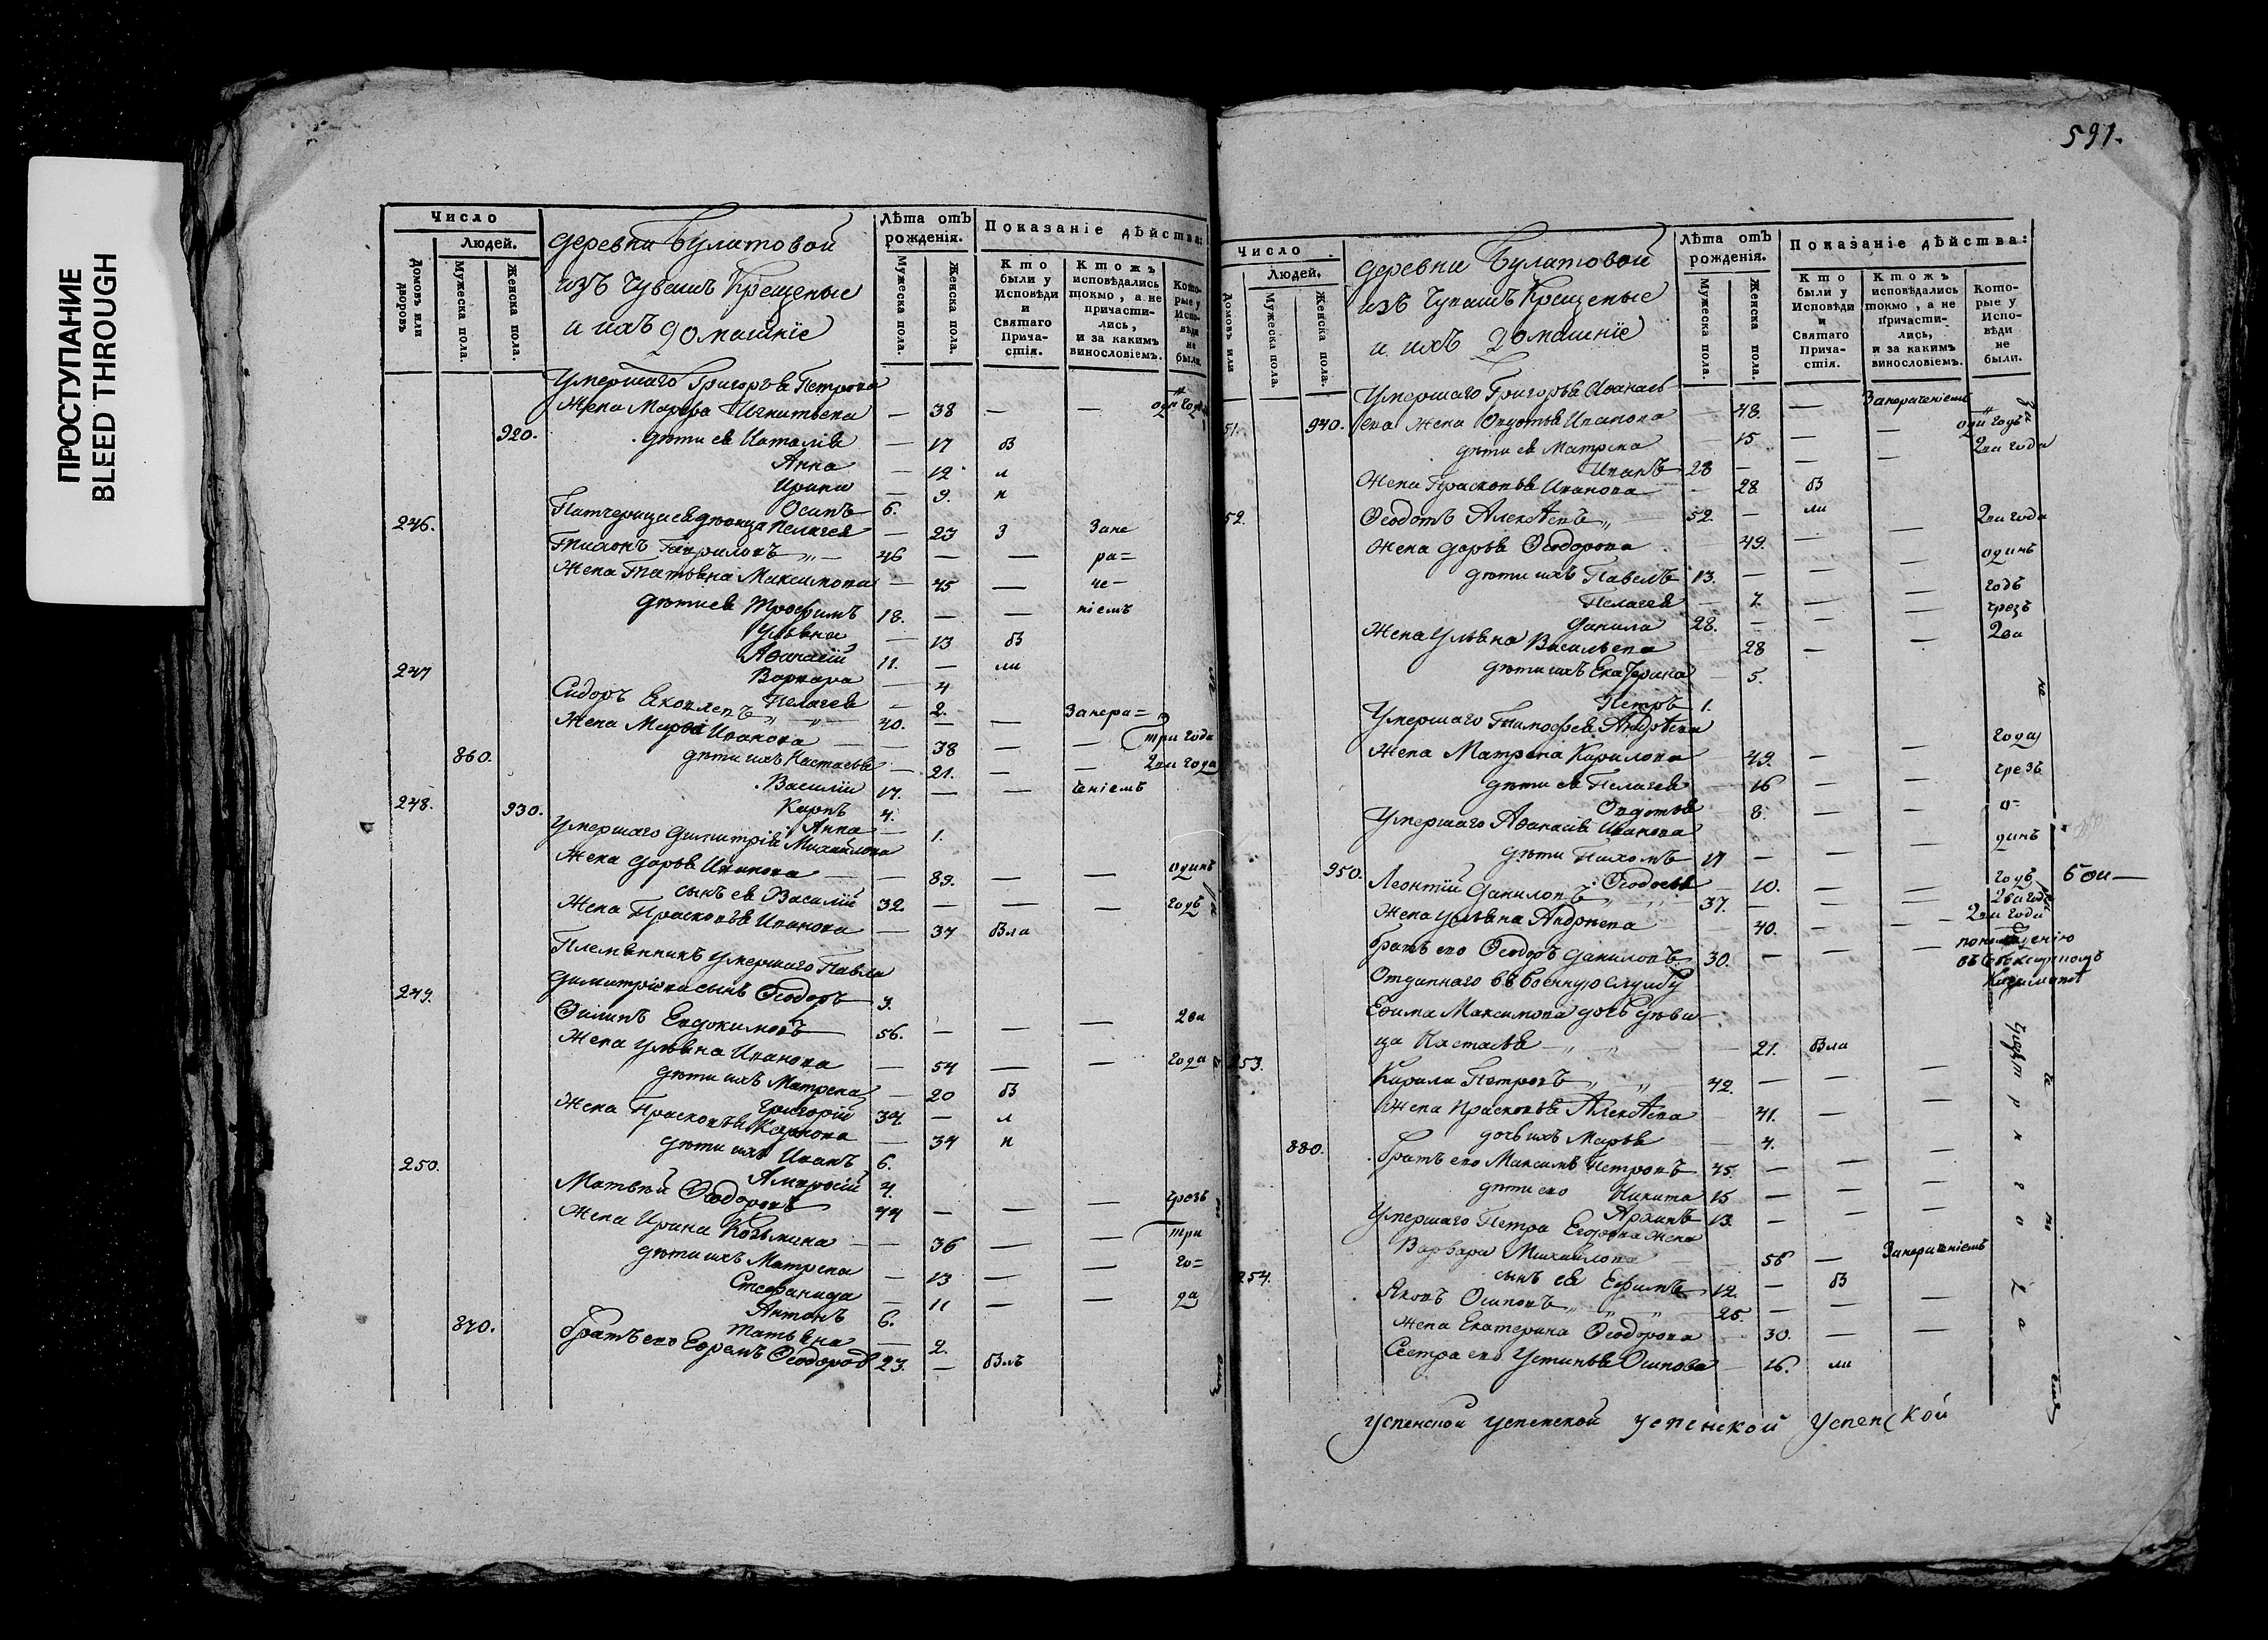 ПРОСТУПАНИЕ
BLEED THROUGH
Число
Людей.
Домовъ или дворовъ
Мужеска пола.
Женска пола.
деревни Булатовой
изъ Чувашъ Крещеные
и ихъ домашніе
Лѣта отъ рожденія.
Мужеска пола.
Женска пола.
Показаніе дѣйства:
Кто были у Исповѣди и Святаго Прича-стія.
Ктожъ исповѣдались токмо, а не причасти-лись, и за какимъ винословіемъ.
Кото-рые у Испо-вѣди не были.
Умершаго Григорья Петрова
Жена Марфа Игнатьева — 38 — —
920. дѣти ея Наталія — 17 бы
Анна — 12 л
Ирина — 9. и
Осипъ 6.
Пелагея — 23 3 Зане
246. Тихонъ Гавриловъ 46 — — ра=
Жена Татьяна Максимова — 45 — че-
дѣти ея Трофимъ 18. — — ніемъ
Ульяна — 13 бы
Афанасій 11. — ли
Варвара — 4
Пелагея — 2.
247 Сидоръ Яковлевъ 40. — — Занера=
Жена Марья Иванова — 38 — — три года
дѣти ихъ Настасья — 21. — — два года
860. Василій 17. — — ченіемъ
Карпъ 4.
930. Анна — 1.
248. Умершаго Димитрія Михайлова
Жена Дарья Иванова — 89. — — одинъ
сынъ ея Василій 32. — — — годъ
Жена Прасковья Иванова — 37 была
Племянникъ умершаго Павла
Димитріева сынъ Феодоръ 9.
249. Филипъ Евдокимовъ 56. — — — два
Жена Ульяна Иванова — 54 — — года
дѣти ихъ Матрена — 20 бы
Григорій 34. — л
Жена Прасковья Карпова — 34 и
дѣти ихъ Иванъ 6.
Амвросій 4.
250. Матвей Феодоровъ 44 — — — чрезъ
Жена Ирина Козьмина — 36 — — три
дѣти ихъ Матрена — 13 — — го=
Стефанида — 11 — — да
Антонъ 6.
Татьяна — 2.
870. братъ его Ефремъ Феодоровъ 23. — былъ
591.
Число
Людей.
Домовъ или
Мужеска пола.
Женска пола.
деревни Булатовой
изъ Чувашъ Крещеные
и ихъ домашніе
Лѣта отъ рожденія.
Мужеска пола.
Женска пола.
Показаніе дѣйства:
Кто были у Исповѣди и Святаго Прича-стія.
Ктожъ исповѣдались токмо, а не причасти-лись, и за какимъ винословіемъ.
Кото-рые у Испо-вѣди не были.
Умершаго Григорья Афанась
51. 940. ева Жена Авдотья Иванова — 48. — Занераченіемъ
дѣти ея Матрена — 15 — — два года
Иванъ 28 — — —
Жена Прасковья Иванова — 28 бы
52. Феодотъ Алексѣевъ 52. — ли два года
Жена Дарья Феодорова 49. — —
дѣти ихъ Павелъ 13. — — — одинъ
Пелагея — 7. — — годъ
Данила 28. — — — чрезъ
Жена Ульяна Васильева 28 — — два
дѣти ихъ Екатерина — 5.
Петръ 1.
Умершаго Тимофея Андрѣева
Жена Матрена Кирилова 49. — — года
дѣти ея Пелагея 16 — — чрезъ
Авдотья 8. — — о=
Умершаго Афанасія Иванова
дѣти Пахомъ 17 — — — динъ
950. Феодосья — 10. — — годъ
Леонтій Даниловъ 37. — — — два года
Жена Ульяна Андреева 40. — — два года
братъ его Феодоръ Даниловъ 30. — —
Отданнаго въ военную службу
Ефима Максимова дочь дѣви-
ца Настасья — 21. была
253. Кирила Петровъ 42. — — —
Жена Прасковья Алексѣева 41. — —
дочь ихъ Марья — 4.
880. братъ его Максимъ Петровъ 45. — — —
дѣти его Никита 15 — — —
Архипъ 13. — — —
Умершаго Петра Егорова Жена
Варвара Михайлова — 56 — Занераченіемъ
сынъ ея Ефимъ 12. — бы
254. Яковъ Осиповъ 25. — — —
Жена Екатерина Феодорова 30. — —
Сестра его Устинья Осипова — 16. ли
Успенской Успенской Успенской Успенской